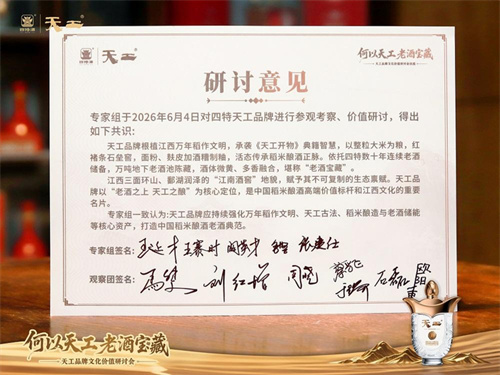 四特酒 天工
何以天工老酒宝藏
四特酒 天工
何以天工老酒宝藏
天工品牌文化价值研讨会
研讨意见
专家组于2026年6月4日对四特天工品牌进行参观考察、价值研讨，得出
如下共识：
天工品牌根植江西万年稻作文明，承袭《天工开物》典籍智慧，以整粒大米为粮，红
褚条石垒窖，面粉、麸皮加酒糟制釉，活态传承稻米酿酒正脉。依托四特数十年连续老酒
储备，万吨地下老酒池陈藏，酒体微黄、多香融合，堪称“老酒宝藏”。
江西三面环山、鄱湖润泽的“江南酒窖”地貌，赋予其不可复制的生态禀赋。天工品牌
以“老酒之上 天工之酿”为核心定位，是中国稻米酿酒高端价值标杆和江西文化的重要
名片。
专家组一致认为：天工品牌应持续强化万年稻作文明、天工古法、稻米酿造与老酒储能
等核心资产，打造中国稻米酿酒老酒典范。
专家组签名：
观察团签名： 刘红增
天工
何以天工老酒宝藏
天工品牌文化价值研讨会